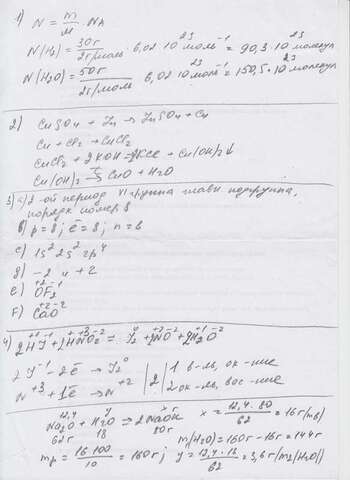 1) N = m/M · NA
N(H2) = 30г / 2г/моль · 6,02·10^23 моль^-1 = 90,3·10^23 молекул
N(H2O) = 50г / 2г/моль · 6,02·10^23 моль^-1 = 150,5·10^23 молекул
2) CuSO4 + Zn → ZnSO4 + Cu
Cu + Cl2 → CuCl2
CuCl2 + 2KOH = 2KCl + Cu(OH)2↓
Cu(OH)2 → CuO + H2O
3) а) 2-ой период VI группа главн подгруппа,
порядк номер 8
в) p = 8; ē = 8; n = 8
с) 1s² 2s² 2p⁴
д) -2 и +2
е) OF2
F) CaO
4) 2HJ + 2HNO2 = J2 + 2NO + 2H2O
2J^-1 - 2ē → J2^0 | 1 в-ль, ок-ние
N^+3 + 1ē → N^+2 | 2 | 2 ок-ль, вос-ние
12,4 y
Na2O + H2O → 2NaOH x = 12,4·80 / 62 = 16г (mв)
62г 18 80г
mр = 16·100 / 10 = 160г; m(H2O) = 160г - 16г = 144г
y = 12,4·18 / 62 = 3,6г (m2(H2O))